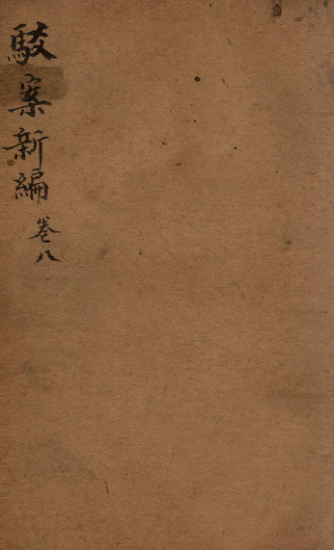 駁案新編 卷八